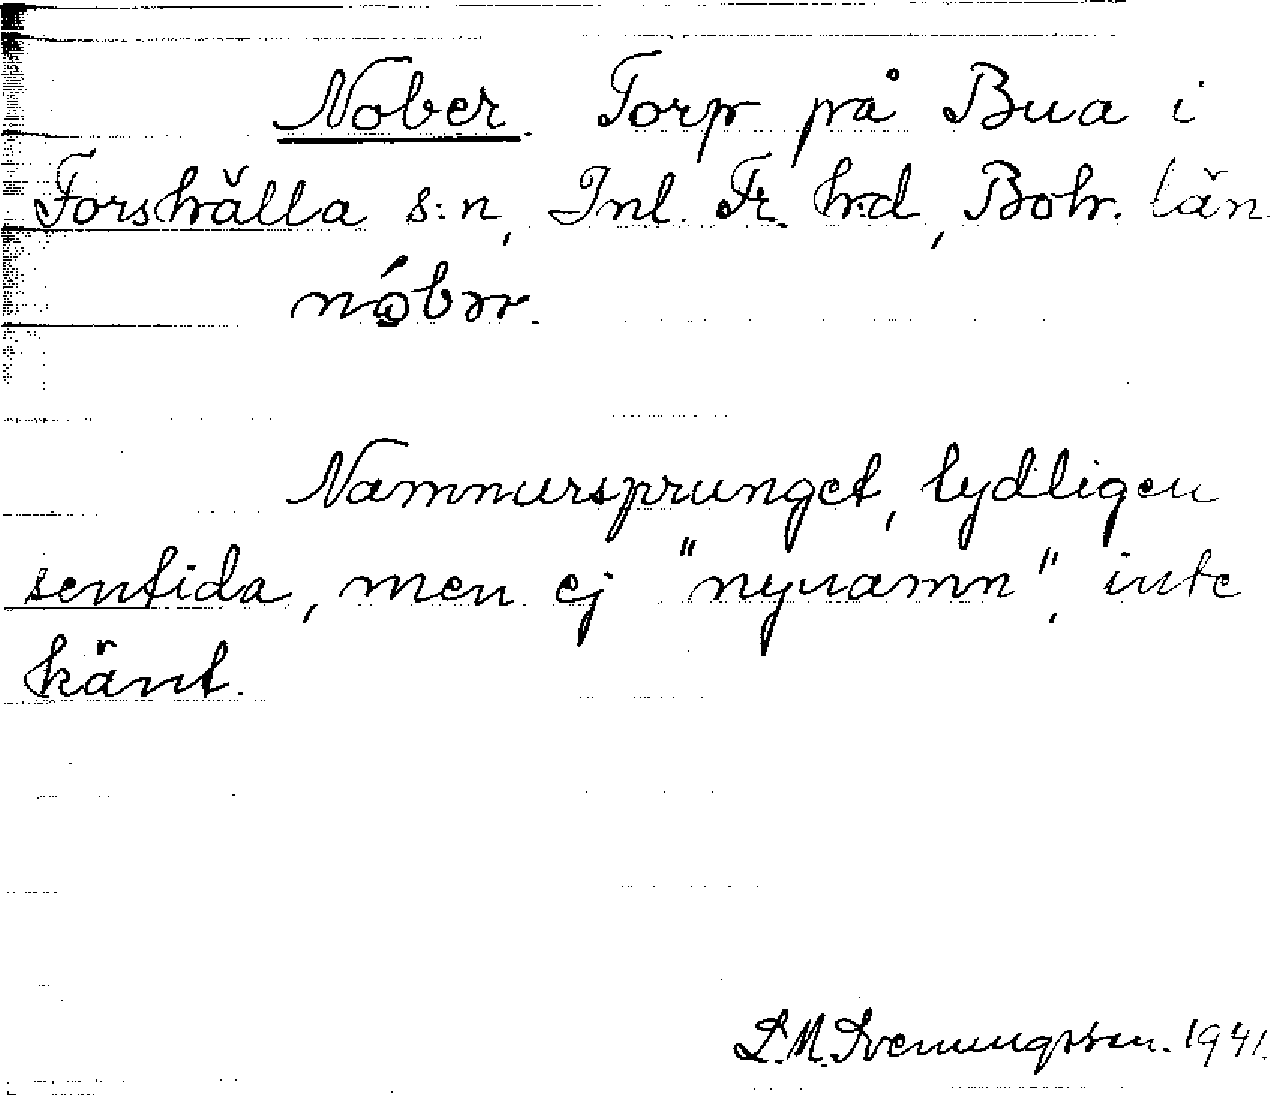 Nober. Torp på Bua i
Forshälla s:n, Inl. Fr. hd, Boh. län
nó̱bər.
Namnursprunget, tydligen
sentida, men ej "nynamn", inte
känt.
S. M. Svenungsson. 1941.